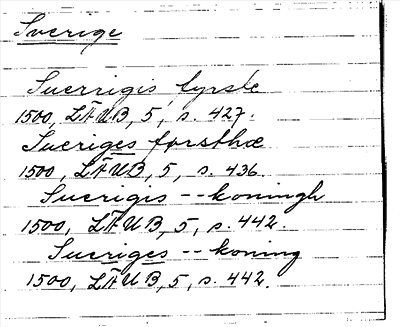 Sverige
Suerrigis fyrste
1500, LÄUB, 5, s. 427.
Sueriges førsthæ
1500, LÄUB, 5, s. 436.
Suerigis -- koningh
1500, LÄUB, 5, s. 442.
Sueriges -- koning
1500, LÄUB, 5, s. 442.